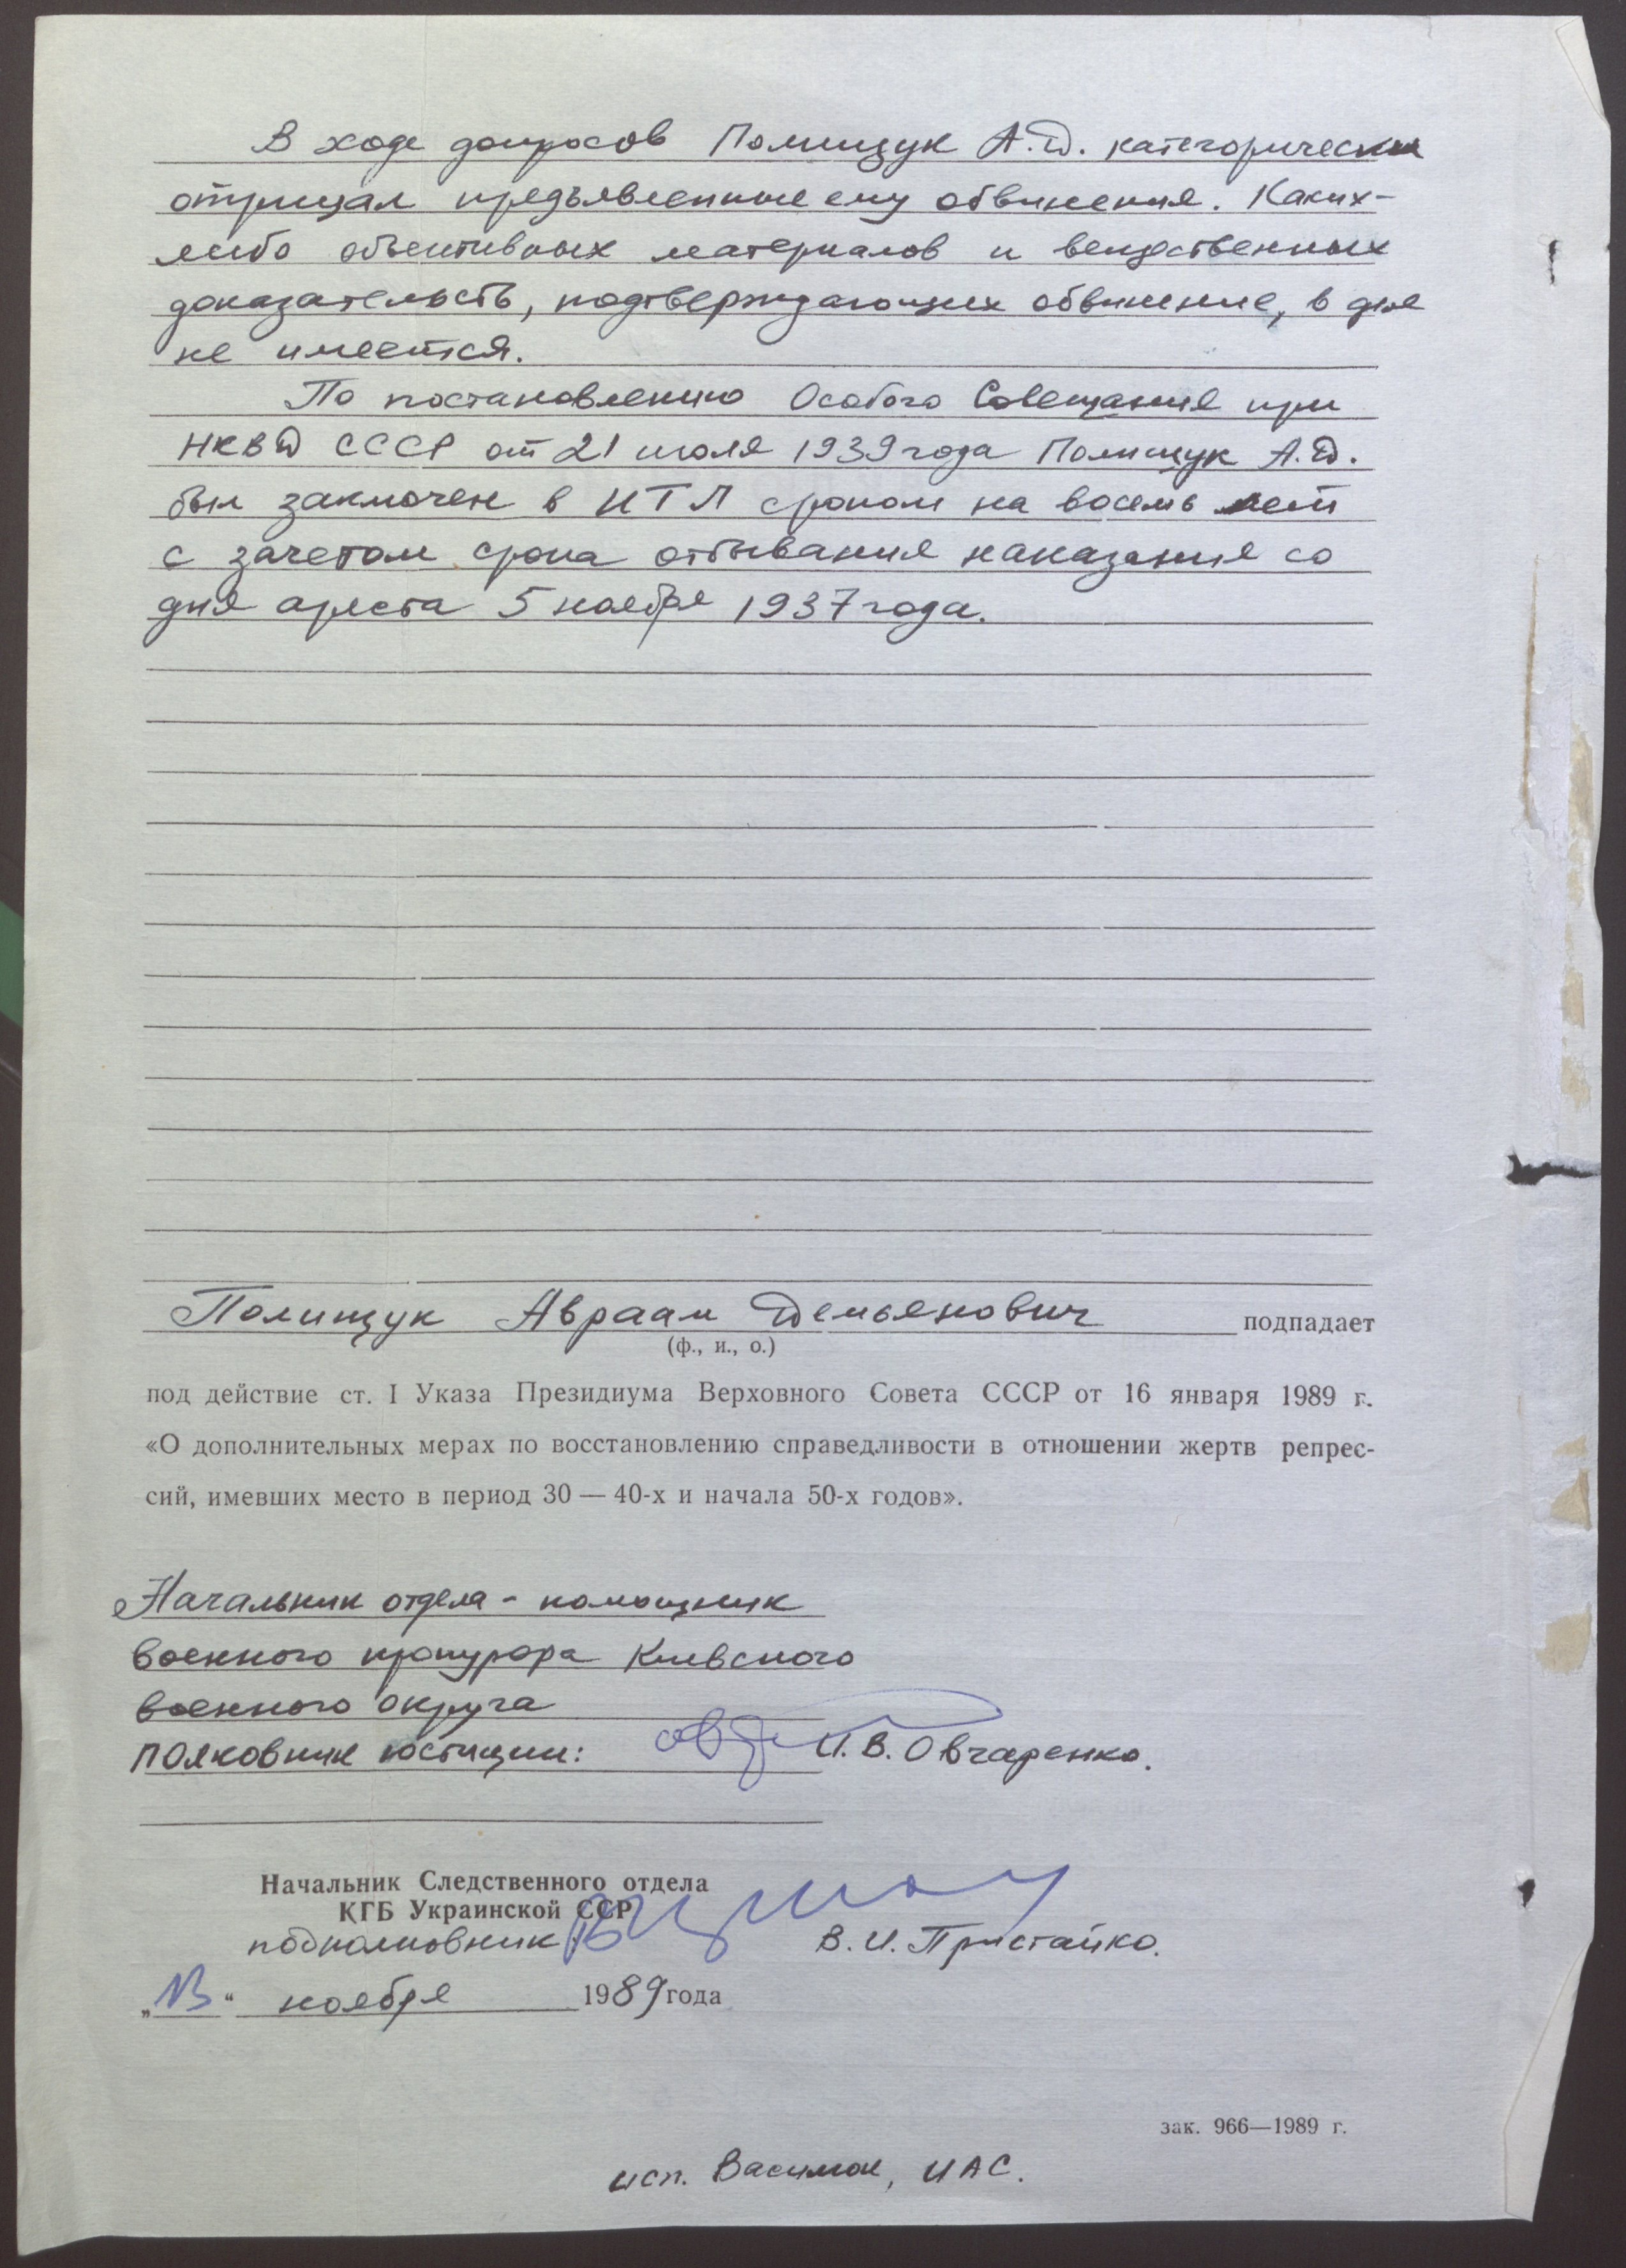 В ходе допросов Полищук А.Д. категорически
отрицал предъявленные ему обвинения. Каких-
либо объективных материалов и вещественных
доказательств, подтверждающих обвинение, в деле
не имеется.
По постановлению Особого Совещания при
НКВД СССР от 21 июля 1939 года Полищук А.Д.
был заключен в ИТЛ сроком на восемь лет
с зачетом срока отбывания наказания со
дня ареста 5 ноября 1937 года.
Полищук Авраам Демьянович подпадает
(ф., и., о.)
под действие ст. I Указа Президиума Верховного Совета СССР от 16 января 1989 г.
«О дополнительных мерах по восстановлению справедливости в отношении жертв репрес-
сий, имевших место в период 30 — 40-х и начала 50-х годов».
Начальник отдела - помощник
военного прокурора Киевского
военного округа
полковник юстиции: И.В. Овчаренко.
Начальник Следственного отдела
КГБ Украинской ССР
подполковник В.И. Пристайко.
„13“ ноября 1989 года
зак. 966—1989 г.
исп. ИАС.